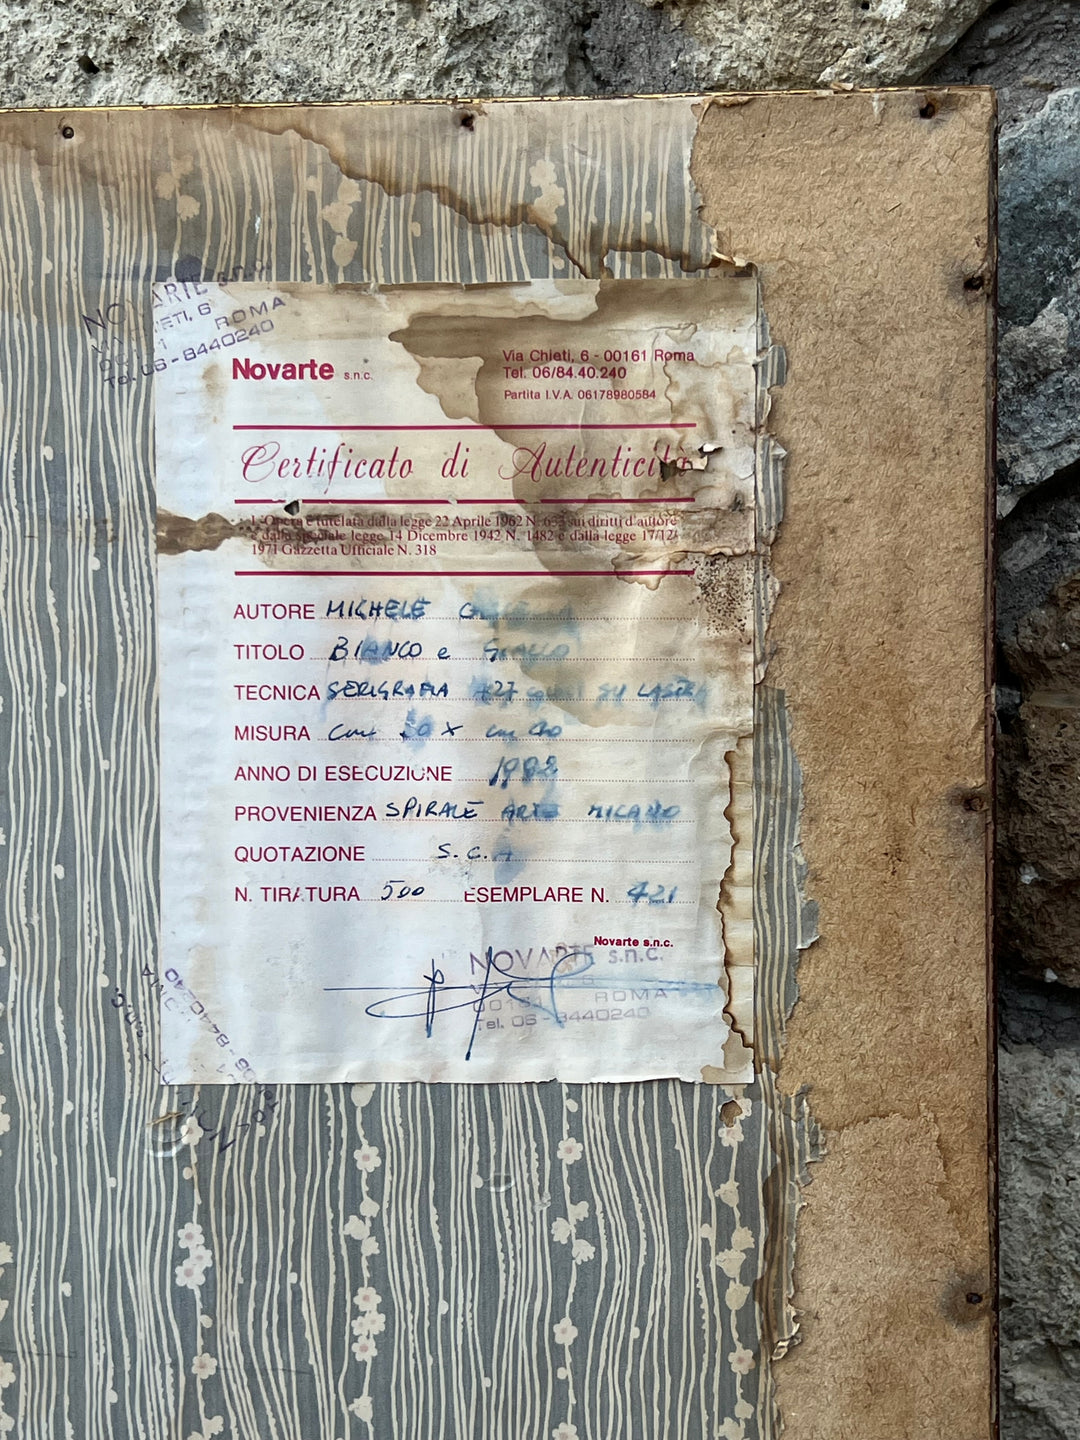 NOVARTE s.n.c.
ROMA
Tel. 06-8440240
Novarte s.n.c.
Via Chieti, 6 - 00161 Roma
Tel. 06/84.40.240
Partita I.V.A. 06178980584
Certificato di Autenticità
L'Opera è tutelata dalla legge 22 Aprile 1962 N. 633 sui diritti d'autore
e dalla speciale legge 14 Dicembre 1942 N. 1482 e dalla legge 17/12/
1971 Gazzetta Ufficiale N. 318
AUTORE MICHELE
TITOLO BIANCO e GIALLO
TECNICA SERIGRAFIA SU
MISURA cm X cm
ANNO DI ESECUZIONE 1988
PROVENIENZA SPIRALE ARTE MILANO
QUOTAZIONE S.C.A
N. TIRATURA 500 ESEMPLARE N. 421
Novarte s.n.c.
NOVARTE s.n.c.
00161 ROMA
Tel. 06-8440240